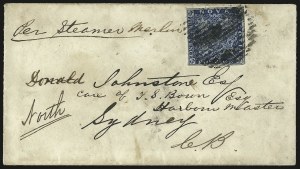 Per Steamer Merlin
Donald Johnstone Esq
Care of T. S. Bown Esq
Harbour Master
North Sydney
C B.